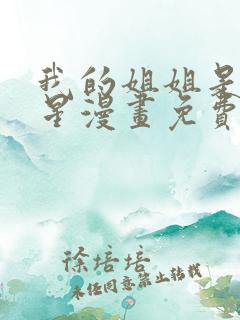 我的姐姐是
星漫畫免費
徐培培
未经同意禁止转载